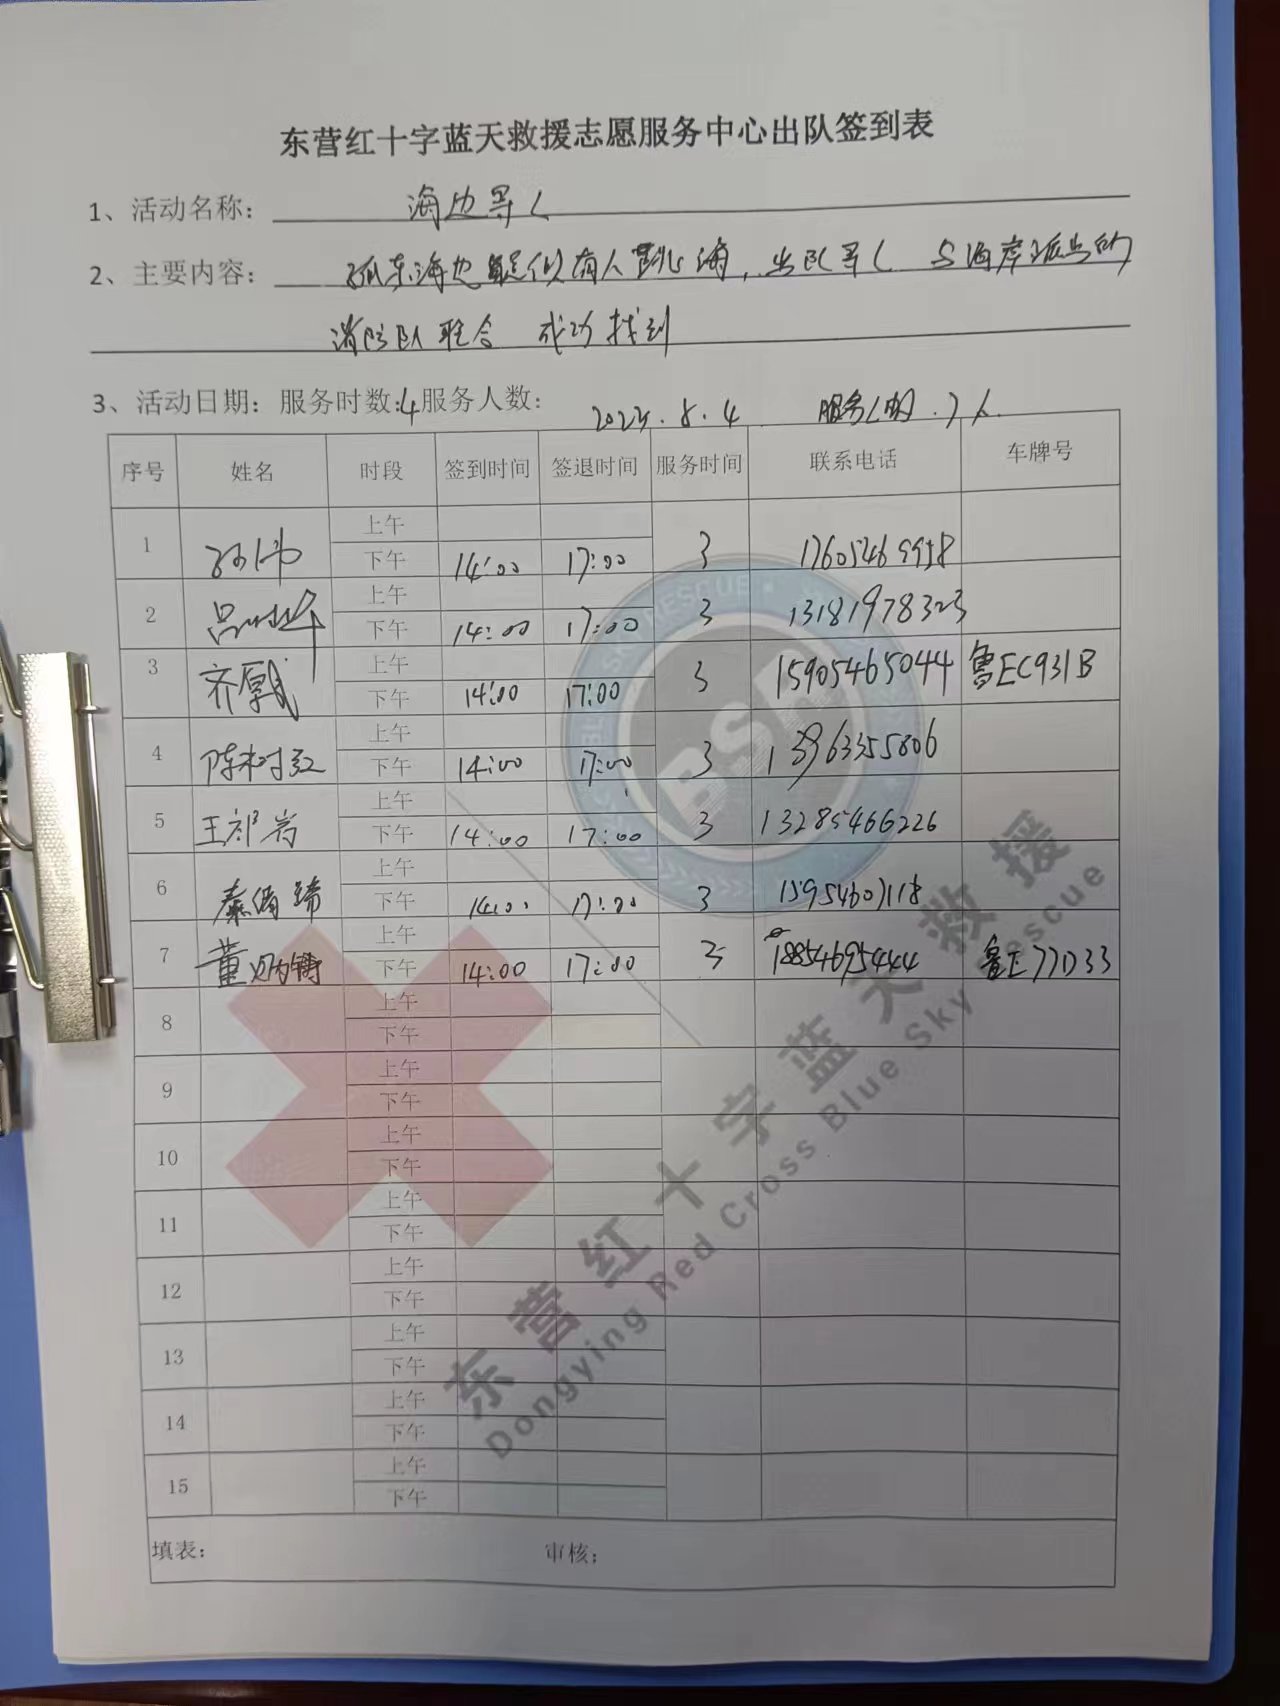 东营红十字蓝天救援志愿服务中心出队签到表
1、活动名称： 海边寻人
2、主要内容： 孤东海边疑似有人跳海，出队寻人 与海岸派出的
消防队联合 成功找到
3、活动日期：服务时数：4 服务人数： 8.4 服务人 7人
序号 姓名 时段 签到时间 签退时间 服务时间 联系电话 车牌号
1 上午
下午 14:00 17:00 3
2 上午
下午 14:00 17:00 3 13181978323
3 上午
齐厚武 下午 14:00 17:00 3 15905465044 鲁EC931B
4 上午
陈树红 下午 14:00 17:00 3 13963355806
5 上午
下午 14:00 17:00 3 13285466226
6 上午
下午 14:00 17:00 3 15954607118
7 上午
下午 14:00 17:00 3 18854695444 鲁E77D33
8 上午
下午
9 上午
下午
10 上午
下午
11 上午
下午
12 上午
下午
13 上午
下午
14 上午
下午
15 上午
下午
填表： 审核：
BSR
东营红十字蓝天救援
Dongying Red Cross Blue Sky Rescue